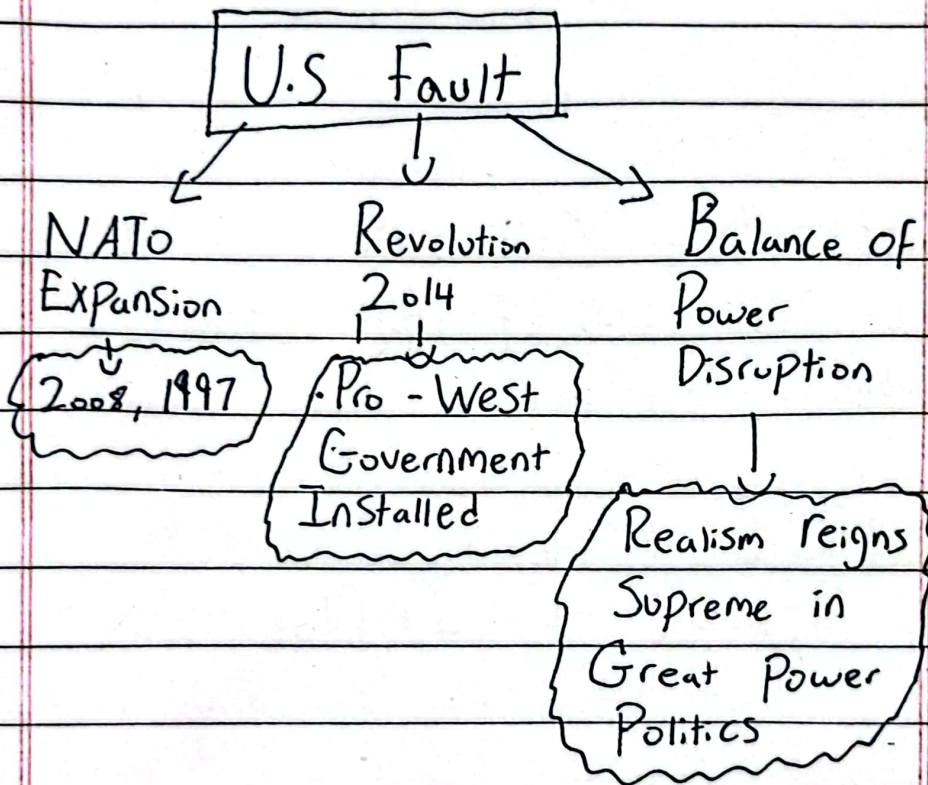 U.S Fault
NATO
Expansion
2008, 1997
Revolution
2014
Pro - West
Government
Installed
Balance of
Power
Disruption
Realism reigns
Supreme in
Great Power
Politics